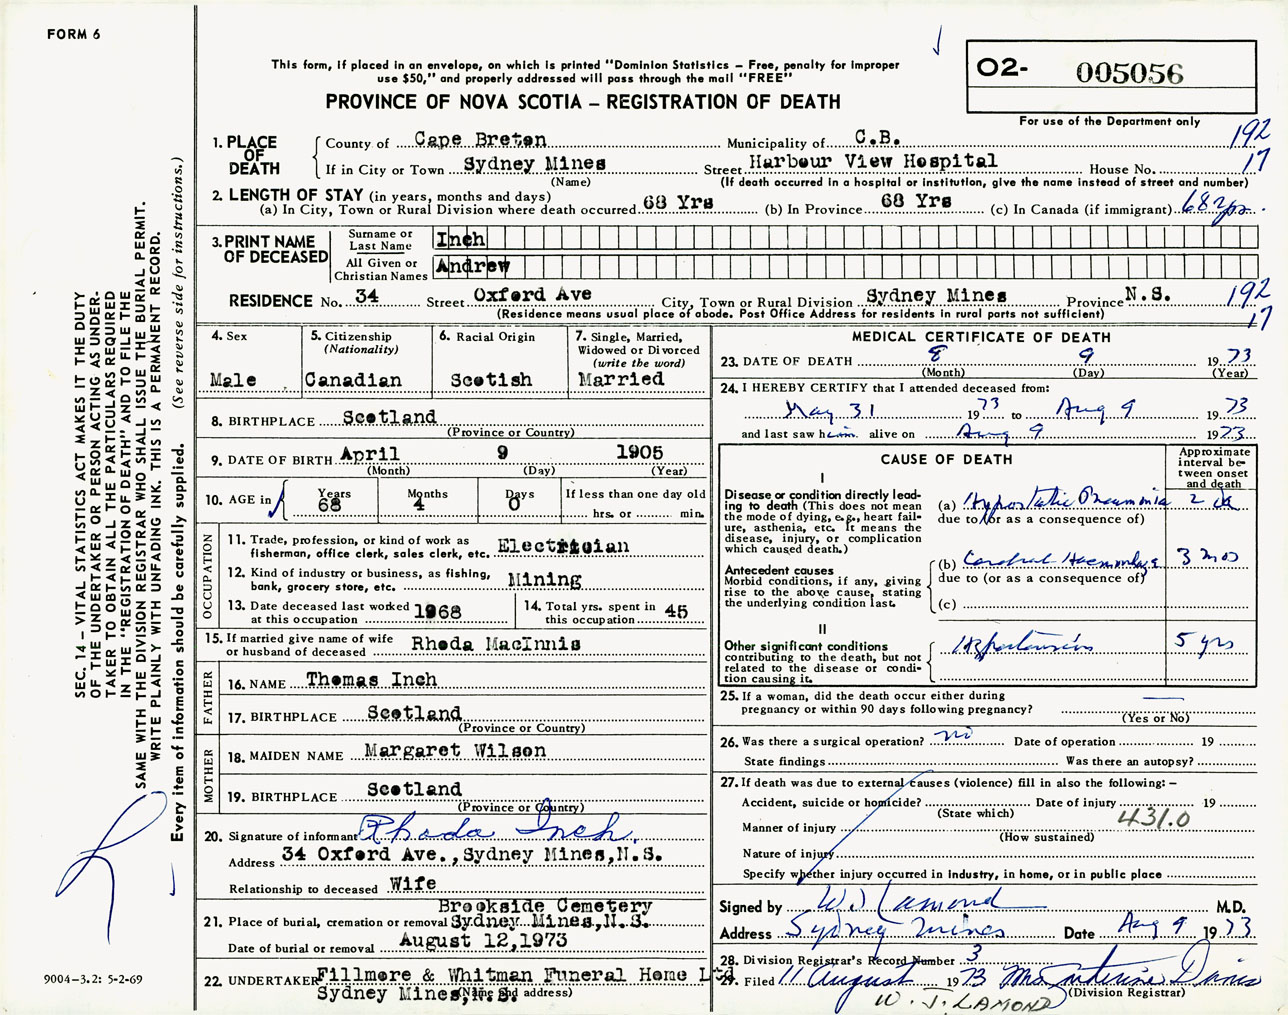 FORM 6
This form, if placed in an envelope, on which is printed "Dominion Statistics – Free, penalty for improper
use $50," and properly addressed will pass through the mail "FREE"
PROVINCE OF NOVA SCOTIA – REGISTRATION OF DEATH
02- 005056
For use of the Department only
SEC. 14 – VITAL STATISTICS ACT MAKES IT THE DUTY
OF THE UNDERTAKER OR PERSON ACTING AS UNDER-
TAKER TO OBTAIN ALL THE PARTICULARS REQUIRED
IN THE "REGISTRATION OF DEATH" AND TO FILE THE
SAME WITH THE DIVISION REGISTRAR WHO SHALL ISSUE THE BURIAL PERMIT.
WRITE PLAINLY WITH UNFADING INK. THIS IS A PERMANENT RECORD.
Every item of information should be carefully supplied. (See reverse side for instructions.)
1. PLACE OF DEATH County of Cape Breton Municipality of C.B. 192
If in City or Town Sydney Mines Street Harbour View Hospital House No. 17
(Name) (If death occurred in a hospital or institution, give the name instead of street and number)
2. LENGTH OF STAY (in years, months and days)
(a) In City, Town or Rural Division where death occurred 68 Yrs (b) In Province 68 Yrs (c) In Canada (if immigrant) 68 yrs.
3. PRINT NAME OF DECEASED Surname or Last Name Inch
All Given or Christian Names Andrew
RESIDENCE No. 34 Street Oxford Ave City, Town or Rural Division Sydney Mines Province N.S. 192
(Residence means usual place of abode. Post Office Address for residents in rural parts not sufficient) 17
4. Sex Male
5. Citizenship (Nationality) Canadian
6. Racial Origin Scotish
7. Single, Married, Widowed or Divorced (write the word) Married
8. BIRTHPLACE Scotland
(Province or Country)
9. DATE OF BIRTH April 9 1905
(Month) (Day) (Year)
10. AGE in Years 68 Months 4 Days 0 If less than one day old
hrs. or min.
OCCUPATION
11. Trade, profession, or kind of work as
fisherman, office clerk, sales clerk, etc. Electrician
12. Kind of industry or business, as fishing,
bank, grocery store, etc. Mining
13. Date deceased last worked at this occupation 1968
14. Total yrs. spent in this occupation 45
15. If married give name of wife
or husband of deceased Rhoda MacInnis
FATHER
16. NAME Thomas Inch
17. BIRTHPLACE Scotland
(Province or Country)
MOTHER
18. MAIDEN NAME Margaret Wilson
19. BIRTHPLACE Scotland
(Province or Country)
20. Signature of informant Rhoda Inch.
Address 34 Oxford Ave., Sydney Mines, N.S.
Relationship to deceased Wife
Brookside Cemetery
21. Place of burial, cremation or removal Sydney Mines, N.S.
Date of burial or removal August 12, 1973
22. UNDERTAKER Fillmore & Whitman Funeral Home Ltd
Sydney Mines, N.S. (Name and address)
9004–3.2: 5-2-69
MEDICAL CERTIFICATE OF DEATH
23. DATE OF DEATH 8 9 1973
(Month) (Day) (Year)
24. I HEREBY CERTIFY that I attended deceased from:
May 31 1973 to Aug 9 1973
and last saw him alive on Aug 9 1973
CAUSE OF DEATH
Approximate interval between onset and death
I
Disease or condition directly lead-
ing to death (This does not mean
the mode of dying, e.g., heart fail-
ure, asthenia, etc. It means the
disease, injury, or complication
which caused death.)
(a) Hypostatic Pneumonia 2
due to (or as a consequence of)
Antecedent causes
Morbid conditions, if any, giving
rise to the above cause, stating
the underlying condition last.
(b) Cerebral Haemorrhage 3 mos
due to (or as a consequence of)
(c)
II
Other significant conditions
contributing to the death, but not
related to the disease or condi-
tion causing it.
Hypertension 5 yrs
25. If a woman, did the death occur either during
pregnancy or within 90 days following pregnancy?
(Yes or No)
26. Was there a surgical operation? no Date of operation 19
State findings Was there an autopsy?
27. If death was due to external causes (violence) fill in also the following: –
Accident, suicide or homicide? Date of injury 19
(State which)
431.0
Manner of injury
(How sustained)
Nature of injury
Specify whether injury occurred in industry, in home, or in public place
Signed by W J Lamond M.D.
Address Sydney Mines Date Aug 9 1973
28. Division Registrar's Record Number 3
29. Filed 11 August 1973 Mrs Davis
(Division Registrar)
W. J. LAMOND